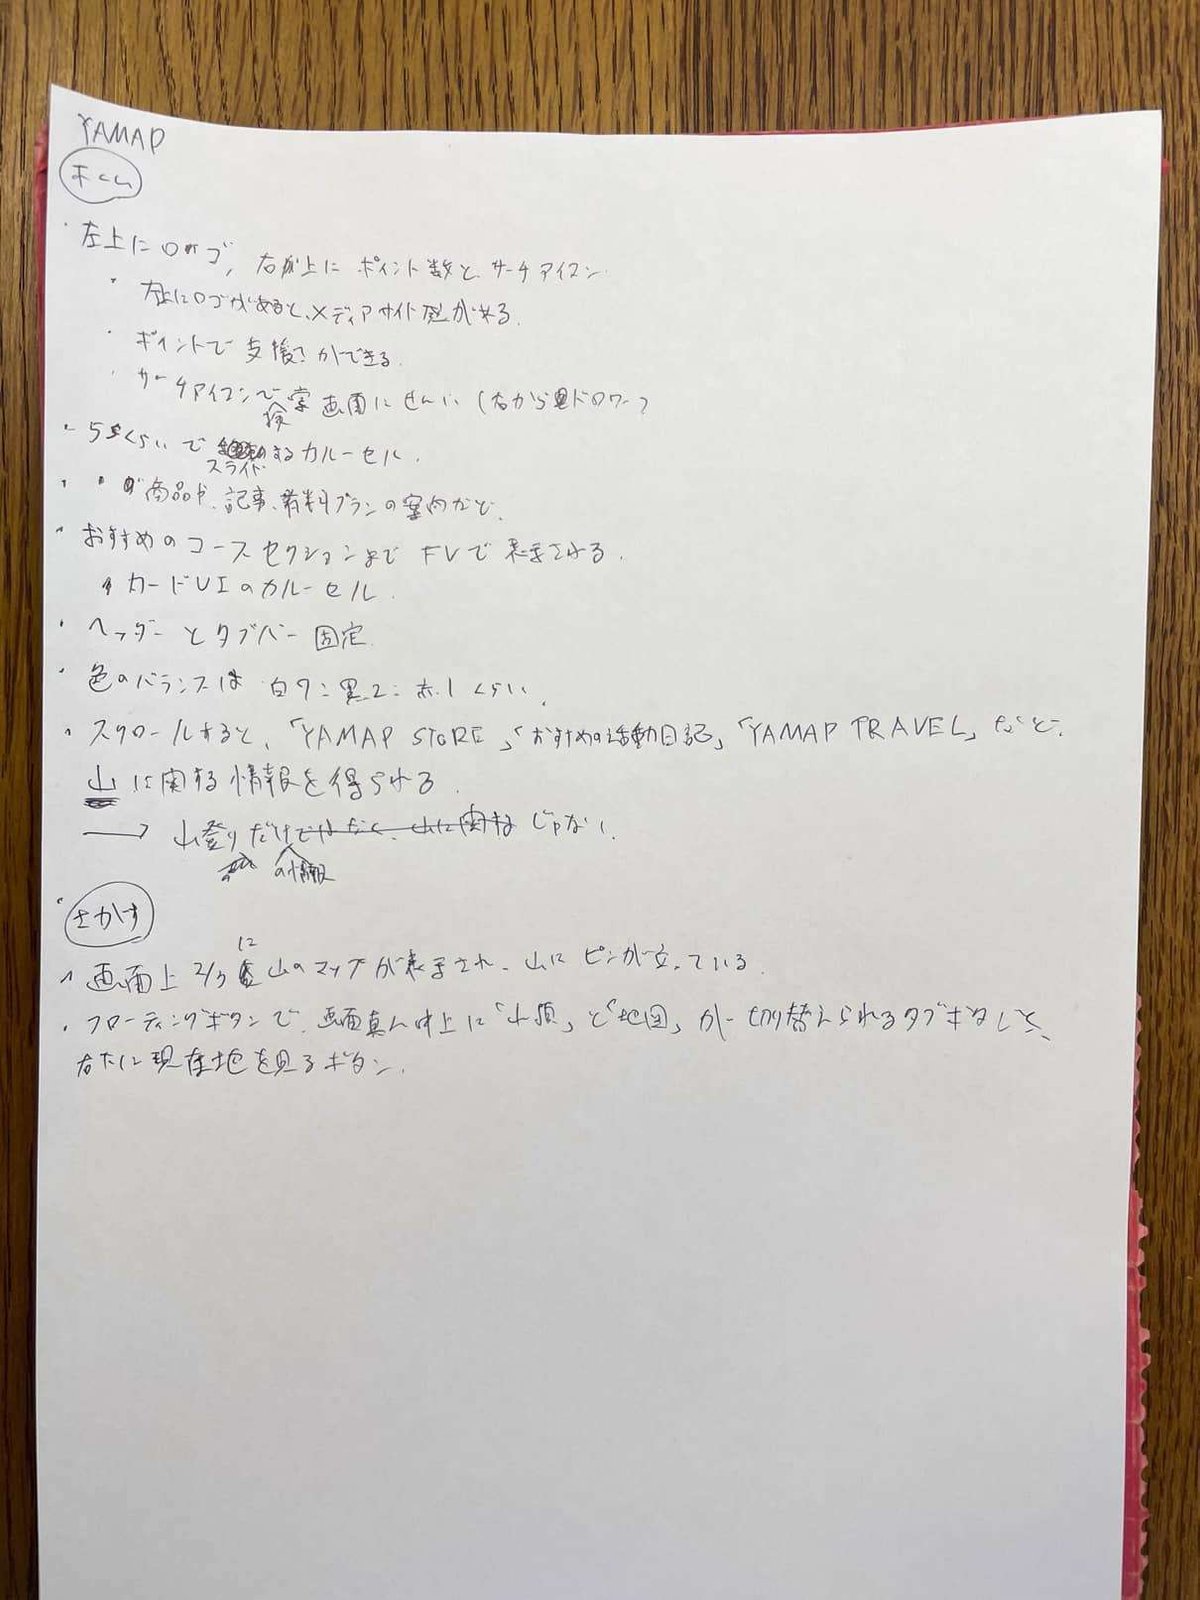 YAMAP
ホーム
・左上にロゴ、右上にポイント数と、サーチアイコン
・左上にロゴがあると、メディアサイト感がでる。
・ポイントで支援?ができる。
・サーチアイコンで検索画面にせんい(右からドロワー)
・5 くらいでスライドするカルーセル。
・商品や、記事、有料プランの案内など、
・おすすめのコースセクションまでFVで表示される。
・カードUIのカルーセル.
・ヘッダーとタブバー固定
・色のバランスは白7:黒2:赤1くらい、
・スクロールすると、「YAMAP STORE」「おすすめの活動日記」「YAMAP TRAVEL」など、
山に関する情報を得られる.
→ 山登りだけの情報じゃない.
・さがす
・画面上2/3に山のマップが表示され、山にピンが立っている.
・フローティングボタンで、画面真ん中上に「山頂」と「地図」が切り替えられるタブボタンと、
右下に現在地を見るボタン.